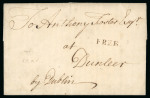 To Anthony Foster Esqr.
at
FREE
Dunleer
by Dublin